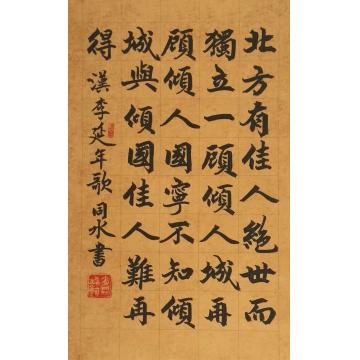 北方有佳人絕世而
獨立一顧傾人城再
顧傾人國寧不知傾
城與傾國佳人難再
得 漢李延年歌 同水書